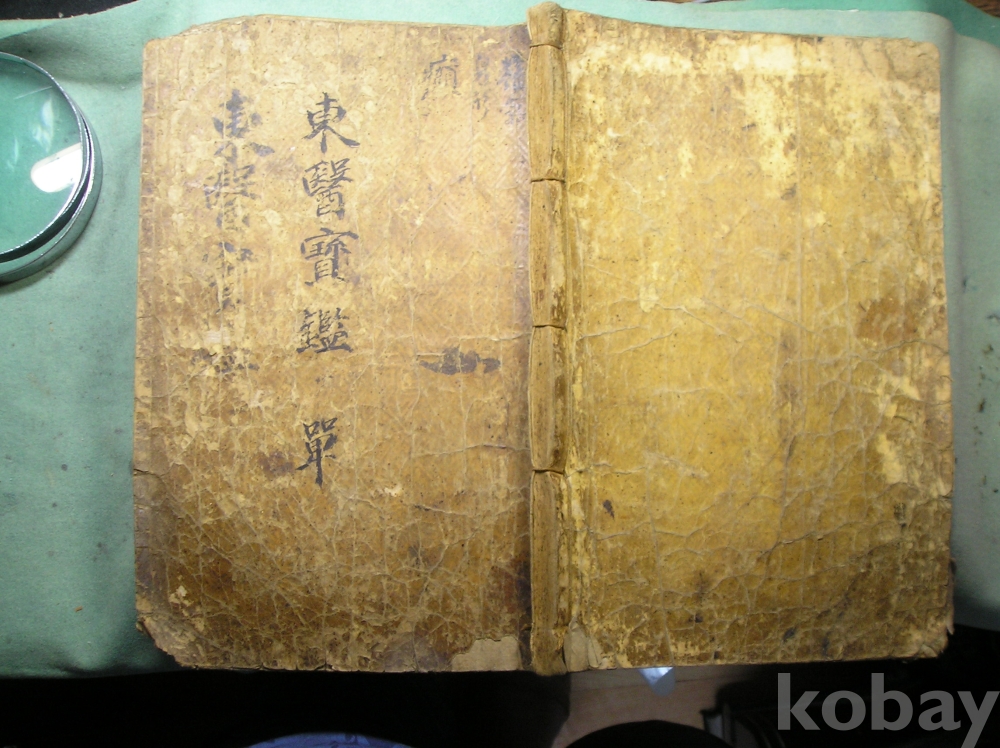 東醫寶鑑 單
東醫寶鑑
kobay